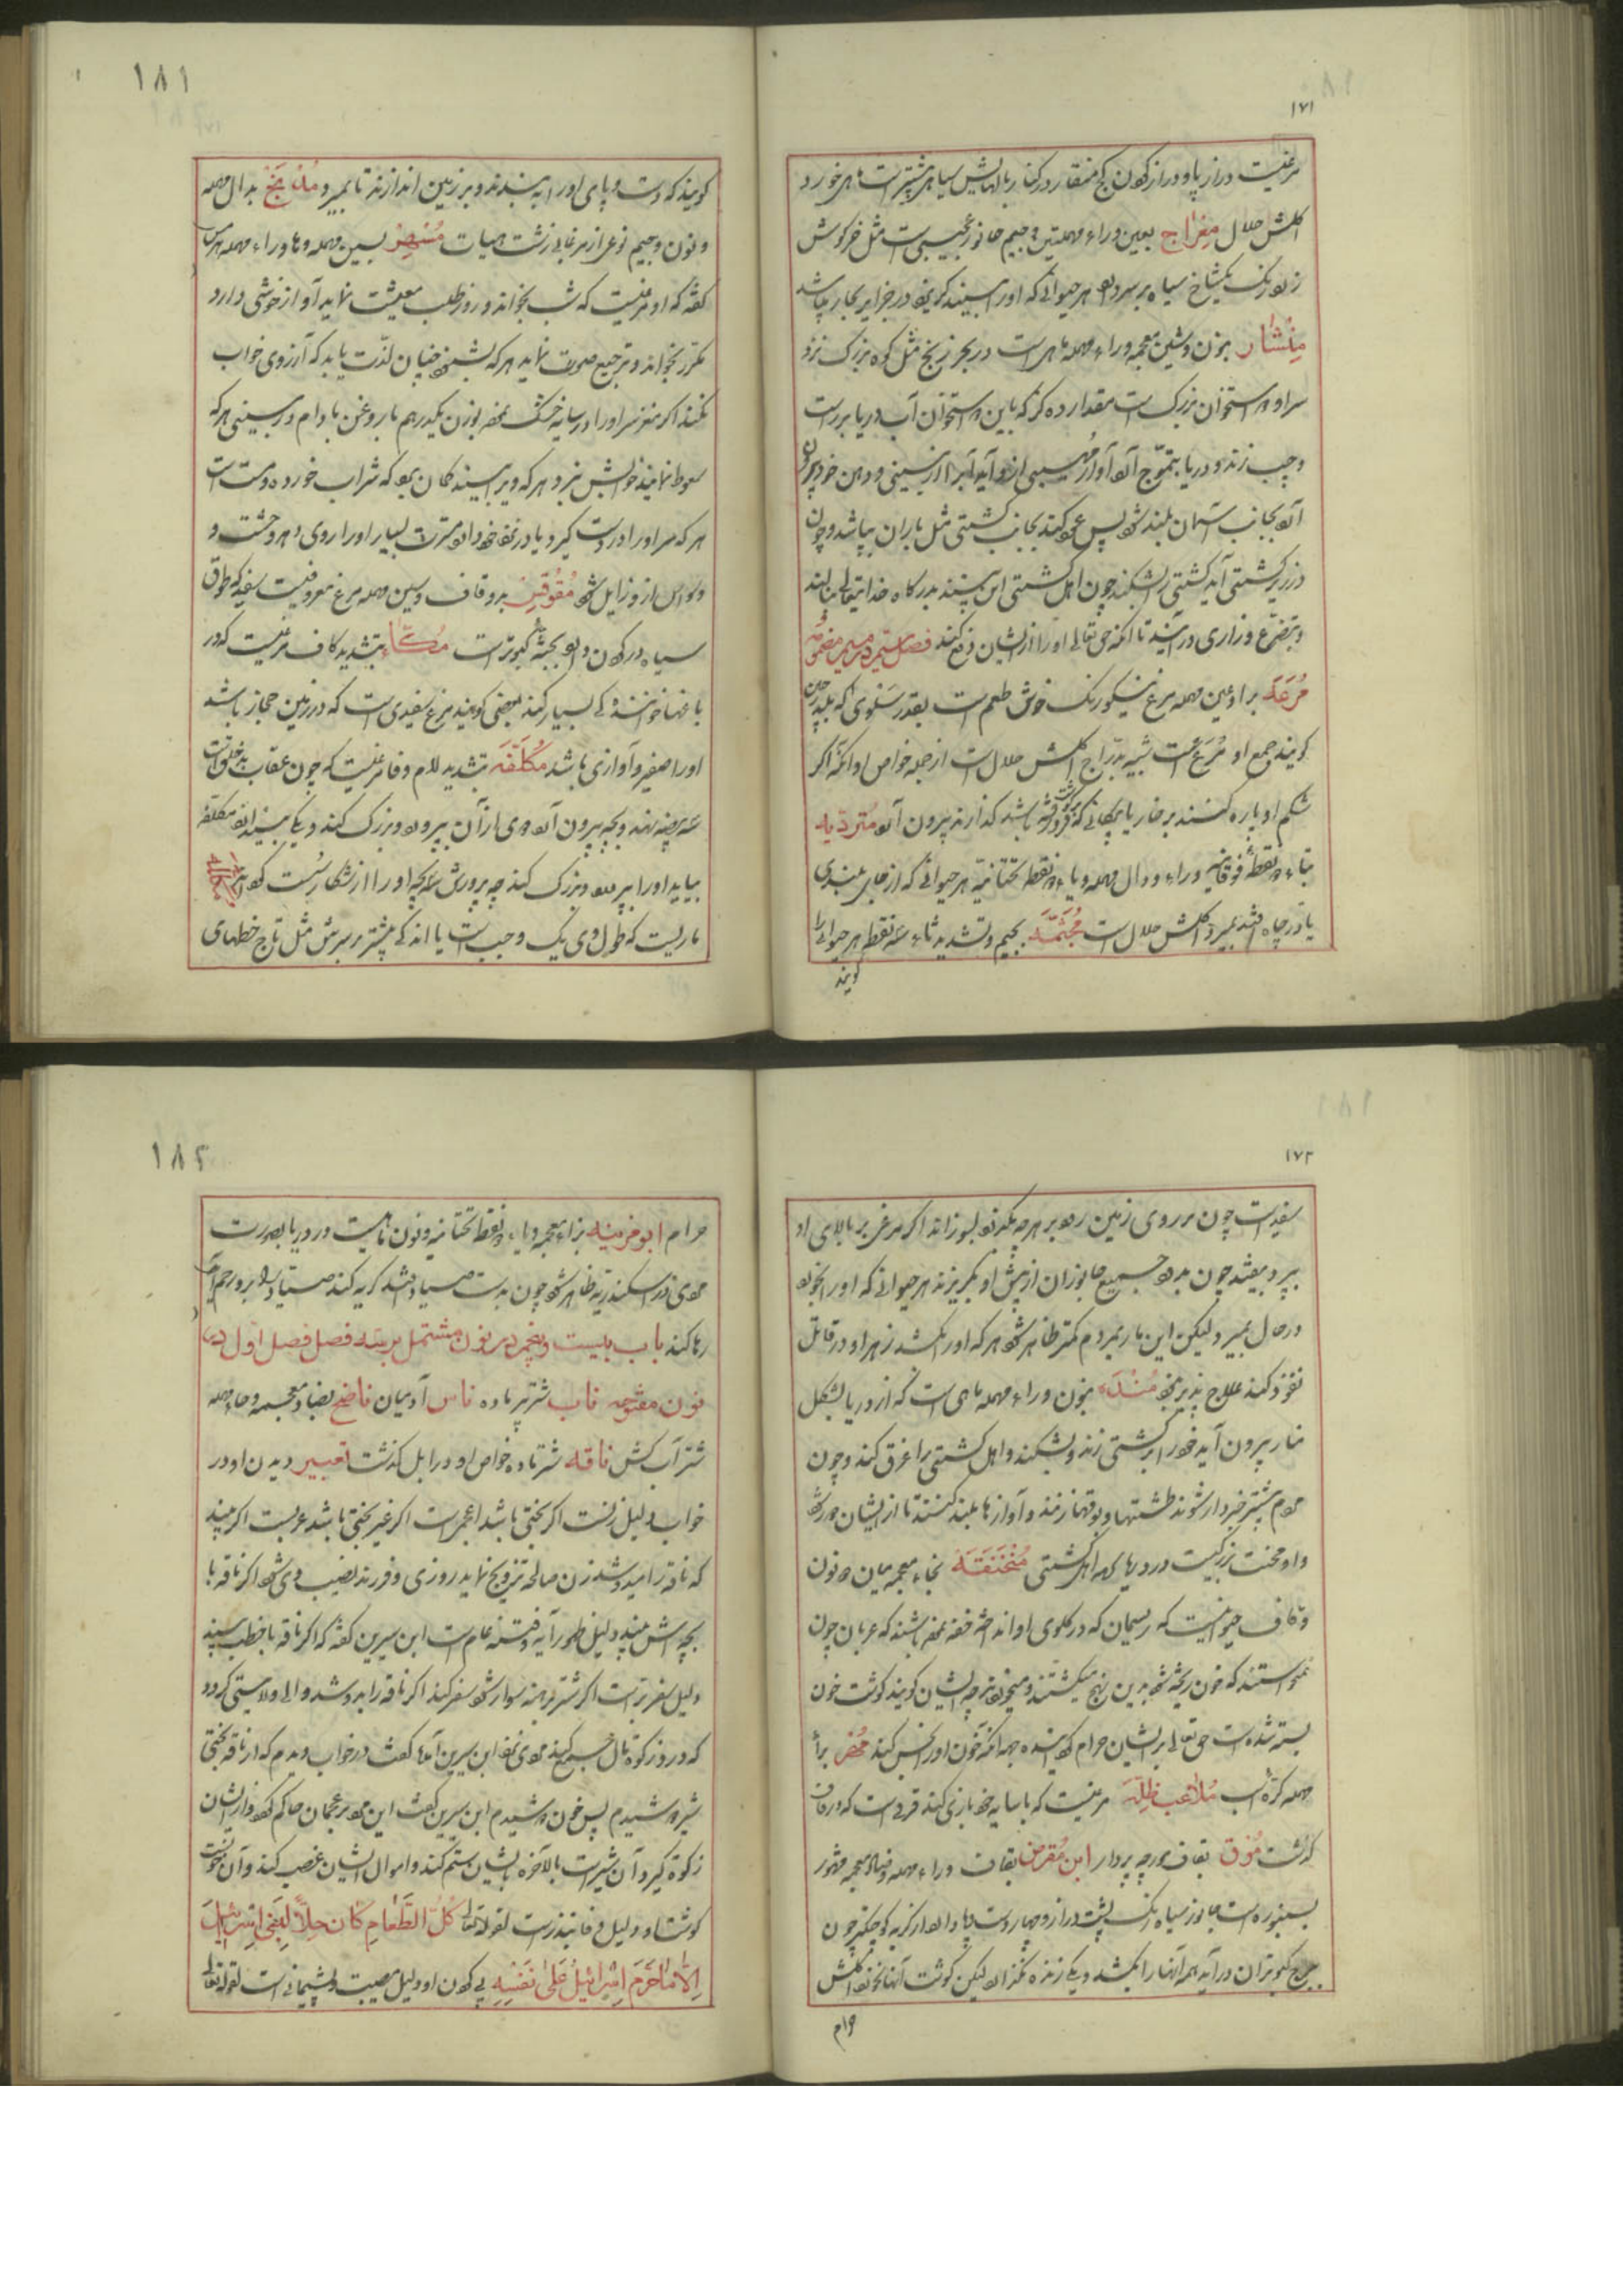 ۱۷۱
مرغیست دراز پا و دراز کردن کج منقار در کنار بالهایش سیاهی بیشتر است ماهی خورد
اکلش حلال معراج بعین و راء مهملتین و جیم جانور عجیبی است مثل خرکوش
زرد رنک یکشاخ سیاه بر سر دارد هر حیوانی که او را بیند کریزد در جزایر بحار باشد
منشار بنون و شین معجمه و راء مهمله ماهی است در بحر زنج مثل کوه بزرک نزد
سر او دو استخوان بزرک است مقدار ده کز که باین دو استخوان آب دریا بر راست
و چپ زند و دریا بتموج آید آواز مهیبی از او آید آب را از بینی و دهن خود بیرون
آرد بجانب آسمان بلند شود پس عود کند بجانب کشتی مثل باران بپاشد و چون
در زیر کشتی آید کشتی را بشکند چون اهل کشتی این بینند بدرکاه خدایتعالی بنالند
و بتضرع و زاری درآیند تا آنکه حق تعالی او را از ایشان دفع کند فصل سیم در میم مضمومه
مرعه براء و عین مهمله مرغ نیکو رنک خوش طعم است بقدر سلوی که بلدرچین
کویند جمع او مرع است شبیه بدراج اکلش حلال است از جمله خواص او آنکه اکر
شکم او پاره کنند بر خار یا پیکانی که در کوشت فرو رفته باشد کذارند بیرون آرد متردیه
بتاء دو نقطه فوقانیه و راء و دال مهمله و یاء دو نقطه تحتانیه هر حیوانی که از جای بلندی
یا در چاه افتد بمیرد اکلش حلال است مجثمه بجیم و تشدید ثاء سه نقطه هر حیوانی را
کویند
۱۸۱
کویند که دست و پای او را به بندند و بر زمین اندازند تا بمیرد مدنج بدال مهمله
و نون و جیم نوعی از مرغابی زشت هیات مسهر بسین مهمله و ها و راء مهمله هرمس
کفته که او مرغیست که شب بخواند و روز طلب معیشت نماید آواز خوشی دارد
مکرر بخواند و ترجیع صوت نماید هر که بشنود چنان لذت یابد که آرزوی خواب
نکند اکر مغز سر او را در سایه خشک نموده بوزن یکدرهم با روغن بادام در بینی هر که
سعوط نمایند خوابش ببرد هر که ویرا بیند کمان برد که شراب خورده و مست است
هر که سر او را در دست کیرد یا در نزد خود دارد مسرت بسیار او را روی دهد و وحشت و
وسواس از او زایل شود مقوقس بدو قاف و سین مهمله مرغ معروفیست سفید که طوق
سیاه در کردن دارد بجثه کبوتر است مکاء بتشدید کاف مرغیست که در
باغها خوانندکی بسیار کند بعضی کویند مرغ سفیدی است که در زمین حجاز باشد
او را صفیر و آوازی باشد مکلفه بتشدید لام و فا مرغیست که چون عقاب بد خلق است
سه بیضه نهد و بچه بیرون آرد دوی از آن بپرورد و بزرک کند و یکی بیندازد مکلفه
بیاید او را بپرورد و بزرک کند چه پرورش سه بچه او را از شکار سست کند
ماریست که طول وی یک وجب است یا اندکی بیشتر بر سرش مثل تاج خطهای
۱۷۲
سفید است چون بر روی زمین رود بر هر چه بکذرد بسوزاند اکر مرغی بر بالای او
بپرد بیفتد چون بدود جمیع جانوران از پیش او بکریزند هر حیوانی که او را بخورد
در حال بمیرد و لیکن این مار بمردم کمتر ظاهر شود هر که او را بکشد زهر او در قاتل
نفوذ کند علاج پذیر نبود منده بنون و راء مهمله ماهی است که از دریا بشکل
منار بیرون آید خود را بر کشتی زند و بشکند و اهل کشتی را غرق کند و چون
مردم بیشتر خبردار شوند طشتها و بوقها زنند و آوازها بلند کنند تا از ایشان دور شود
و او محنت بزرکیست در دریا که اهل کشتی منخنقه بخاء معجمه میان دو نون
و قاف حیوانیست که ریسمان که در کلوی او انداخته خفه نموده باشند که عربان چون
نمیخواستند که خون ریخته شود بدین نهج میکشتند و میخوردند چه ایشان کویند کوشت خون
بسته شده است حق تعالی بر ایشان حرام کردانیده بجهة آنکه خون او را نجس کند مهر براء
مهمله کره اسب ملاعب ظله مرغیست که با سایه خود بازی کند قرلی است که در قاف
کذشت موق بقاف مورچه پردار ابن مقرض بقاف و راء مهمله و ضاد معجمه مشهور
بسموره است جانور سیاه رنک پشت دراز و چهار دست و پا دارد از کربه کوچکتر چون
ببرج کبوتران درآید همه آنها را بکشد و یکی زنده نکذارد لیکن کوشت آنها نخورد اکلش
حرام
۱۸۲
حرام ابو مزینه بزاء معجمه و یاء دو نقطه تحتانیه و نون ماهیست در دریا بصورت
آدمی در اسکندریه ظاهر شود چون بدست صیاد افتد کریه کند صیاد را بر او رحم آید
رها کند باب بیست و پنجم در نون مشتمل بر سه فصل فصل اول در
نون مفتوحه ناب شتر پیر ماده ناس آدمیان ناضح بضاد معجمه و حاء مهمله
شتر آب کش ناقه شتر ماده خواص او در ابل کذشت تعبیر دیدن او در
خواب دلیل زنست اکر بختی باشد اعجمی است اکر غیر بختی باشد عربیست اکر بیند
که ناقه را میدوشد زن صالحه تزویج نماید روزی و فرزند نصیب وی شود اکر ناقه با
بچه اش بیند دلیل ظهور آیه و فتنه عام است ابن سیرین کفته که اکر ناقه با خطب بیند
دلیل سفر بر است اکر شتر برهنه سوار شود سفر کند اکر ناقه را بدوشد والی ولایتی کردد
که در او زکوة مال جمع کند مردی نزد ابن سیرین آمد کفت در خواب دیدم که از ناقه بختی
شیر دوشیدم پس خون دوشیدم ابن سیرین کفت این مرد بر عجمان حاکم کردد و از ایشان
زکوة کیرد آن شیر است بالآخره بایشان ستم کند و اموال ایشان غصب کند و آن خونست
کوشت او دلیل وفا بنذر است لقوله تعالی کُلُّ الطَّعَامِ کَانَ حِلّاً لِبَنِی اِسْرَائِیلَ
اِلّا مَا حَرَّمَ اِسْرَائِیلُ عَلَی نَفْسِهِ پی کردن او دلیل مصیبت و پشیمانی است لقوله تعالی